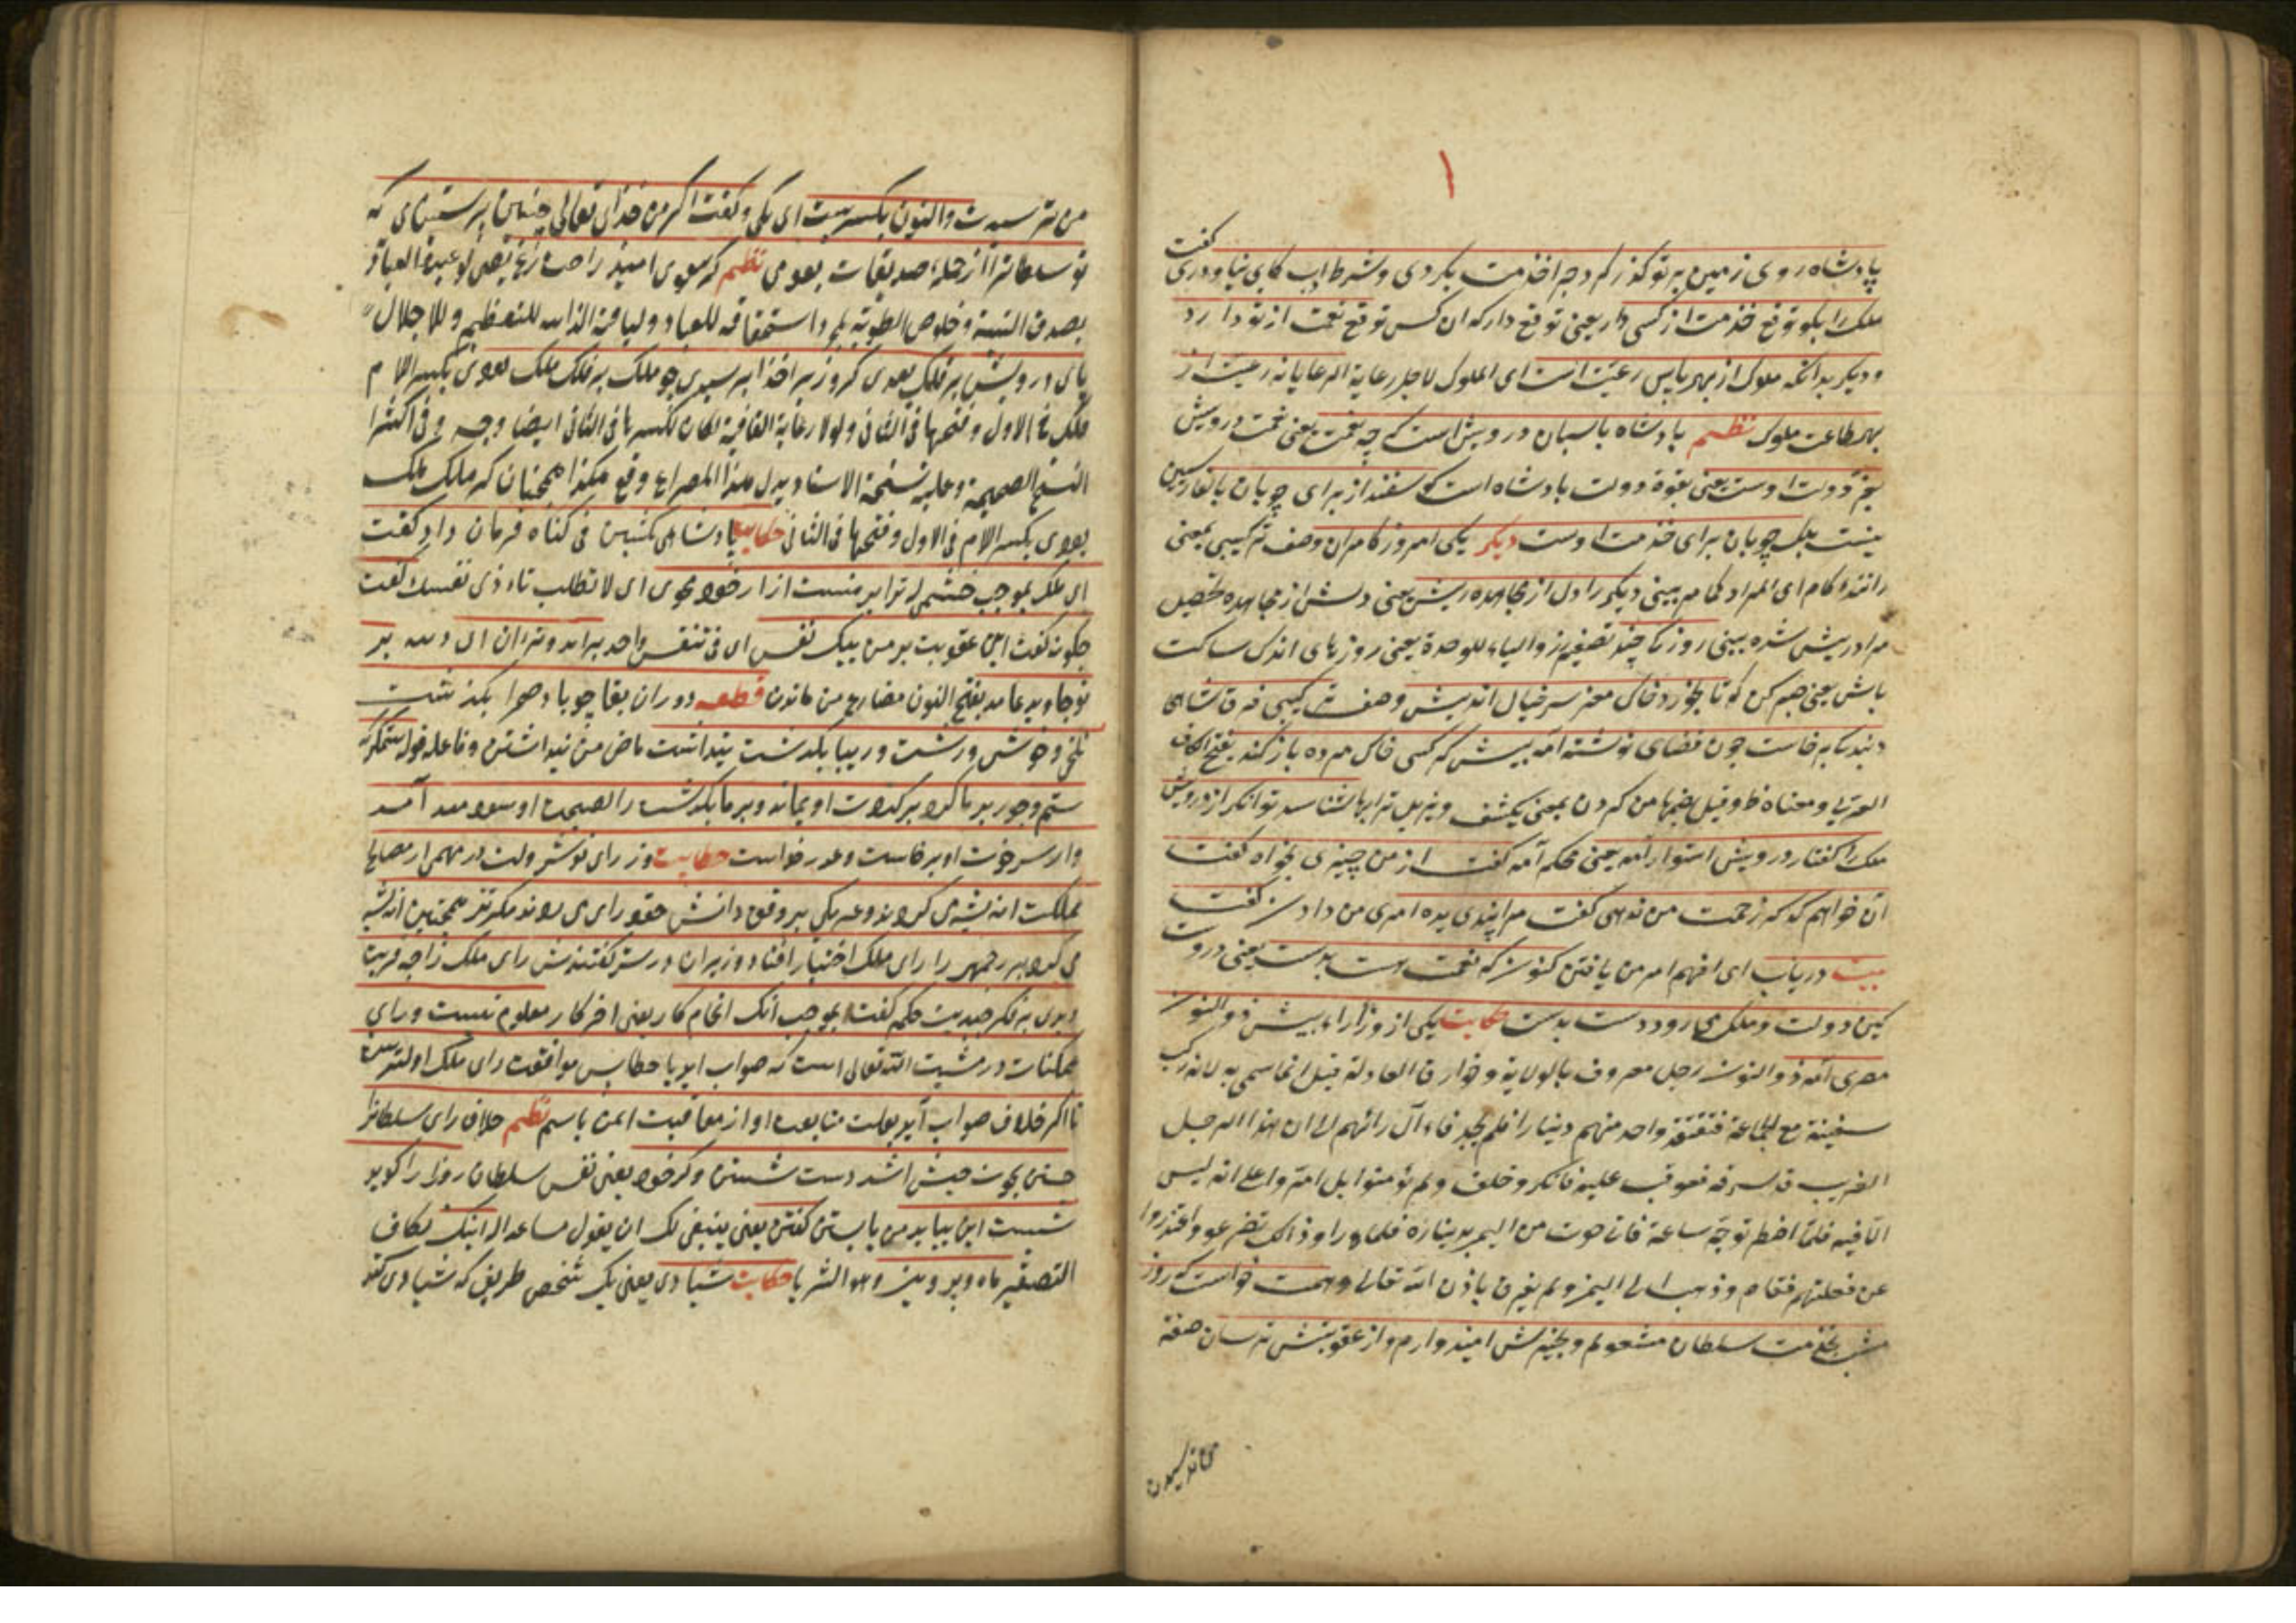 گفت
پادشاه روی زمین به تو گذر کرد چرا خدمت نکردی و شرط ادب بجای نیاوردی
ملک را بگو توقع خدمت از کسی دار یعنی توقع دار که ان کس توقع نعمت از تو دارد
و دیگر بدانکه ملوک از بهر پاس رعیت است ای الملوک لاجل رعایة الرعایا نه رعیت از
بهر طاعت ملوک نظم پادشاه پاسبان درویش است گرچه نعمت یعنی نعمت درویش
بفر دولت اوست یعنی بقوة دولت پادشاه است گوسفند از برای چوپان
نیست بلکه چوپان برای خدمت اوست دیگر یکی امروز کامران وصف ترکیبی بمعنی
راننده کام ای المراد بینی دیگر را دل از مجاهده ریش یعنی دلش از مجاهده
روزکی چند تصغیر روز والیاء للوحدة یعنی روزهای اندک ساکت
باش یعنی صبر کن که تا بخورد خاک مغز سر خیال اندیش وصف ترکیبی فرق شاهی
و بندگی برخاست چون قضای نوشته آمد پیش گر کسی خاک مرده باز کند بفتح الکاف
توانگر از درویش
ملک را گفتار درویش استوار آمد یعنی محکم آمد گفت از من چیزی بخواه گفت
آن خواهم که زحمت من ندهی گفت مرا پندی بده گفت
بیت دریاب ای افهم امر من یافتن کنون که نعمت هست بدست یعنی
کین دولت و ملک می رود دست بدست حکایت یکی از وزرا پیش ذو النون
مصری آمد ذو النون رجل معروف بالولایة و خوارق العادة قیل انما سمی به لانه رکب
سفینة مع الجماعة ففقد واحد منهم دینارا فلم یجد فآل رائهم الی ان هذا الرجل
الغریب قد سرقه فعوقب علیه فانکر و حلف و لم یؤمنوا بل
توجه ساعة فاتی حوت من البحر بدینار فلما راو ذلک تضرعوا و اعتذروا
عن فعلتهم فقام و ذهب الی الیم و لم یغرق باذن الله تعالی و همت خواست که روز
شب بخدمت سلطان مشغولم و بخیرش امیدوارم و از عقوبتش ترسان
من ترسیدن والنون گفت اگر من خدای تعالی چنین پرستیدمی که
تو سلطان را از جمله صدیقان بودمی نظم گر نبودی امید راحت و رنج
بصدق النیة و خلوص الطویة و استحقاقه للعباد و لیاقة الذات للتعظیم و للاجلال
پای درویش بر فلک بودی گر وزیر از خدا بترسیدی چو ملک بر فلک ملک بودی بکسر اللام
فی الاول و فتحها فی الثانی و لولا رعایة القافیة لکان لکسرها فی الثانی ایضا وجه و فی اکثر
النسخ الصحیحة و علیه نسخة الاستاد بدل هذا المصراع وقع هکذا همچنان که ملک ملک
بودی بکسر اللام فی الاول و فتحها فی الثانی حکایت پادشاهی بکشتن بی گناه فرمان داد گفت
ای ملک بموجب خشمی که ترا بر منست آزار خود مجوی ای لا تطلب تأذی نفسک گفت
چگونه گفت این عقوبت بر من بیک نفس ای فی تنفس واحد براید و بزه آن بر
تو جاوید بماند بفتح النون مضارع من ماندن قطعه دوران بقا چو باد صحرا بگذشت
تلخی و خوشی و زشت و زیبا بگذشت پنداشت ماض من پنداشتن و فاعله قوله ستمگر که
ستم و جور بر ما کرد بر گردن او بماند و بر ما بگذشت را نصیحت او سودمند آمد
و از سر خون او برخاست و عذر خواست حکایت وزرای نوشروان در مهمی از مصالح
مملکت اندیشه می کردند و هر یکی بر وفق دانش خود رای می زدند ملک نیز همچنین اندیشه
می کرد بزرجمهر را رای ملک اختیار افتاد وزیران در سر گفتندش رای ملک را چه مزیت
دیدی بر فکر چندین حکیم گفت بموجب آنک انجام کار یعنی اخر کار معلوم نیست و رای
همکنان در مشیت الله تعالی است که صواب اید یا خطا پس موافقت رای ملک اولیتر است
تا اگر خلاف صواب آید بعلت متابعت او از معاقبت ایمن باشم نظم خلاف رای سلطان
جستن بخون خویش باشد دست شستن اگر خود یعنی نفس سلطان روز را گوید
شبست این بباید می بایستن گفتن یعنی ینبغی لک ان یقول اینک بکاف
التصغیر ماه و پروین و هو الثریا حکایت شیادی یعنی یک شخص طریق که شیادی کند
من ترسیدن